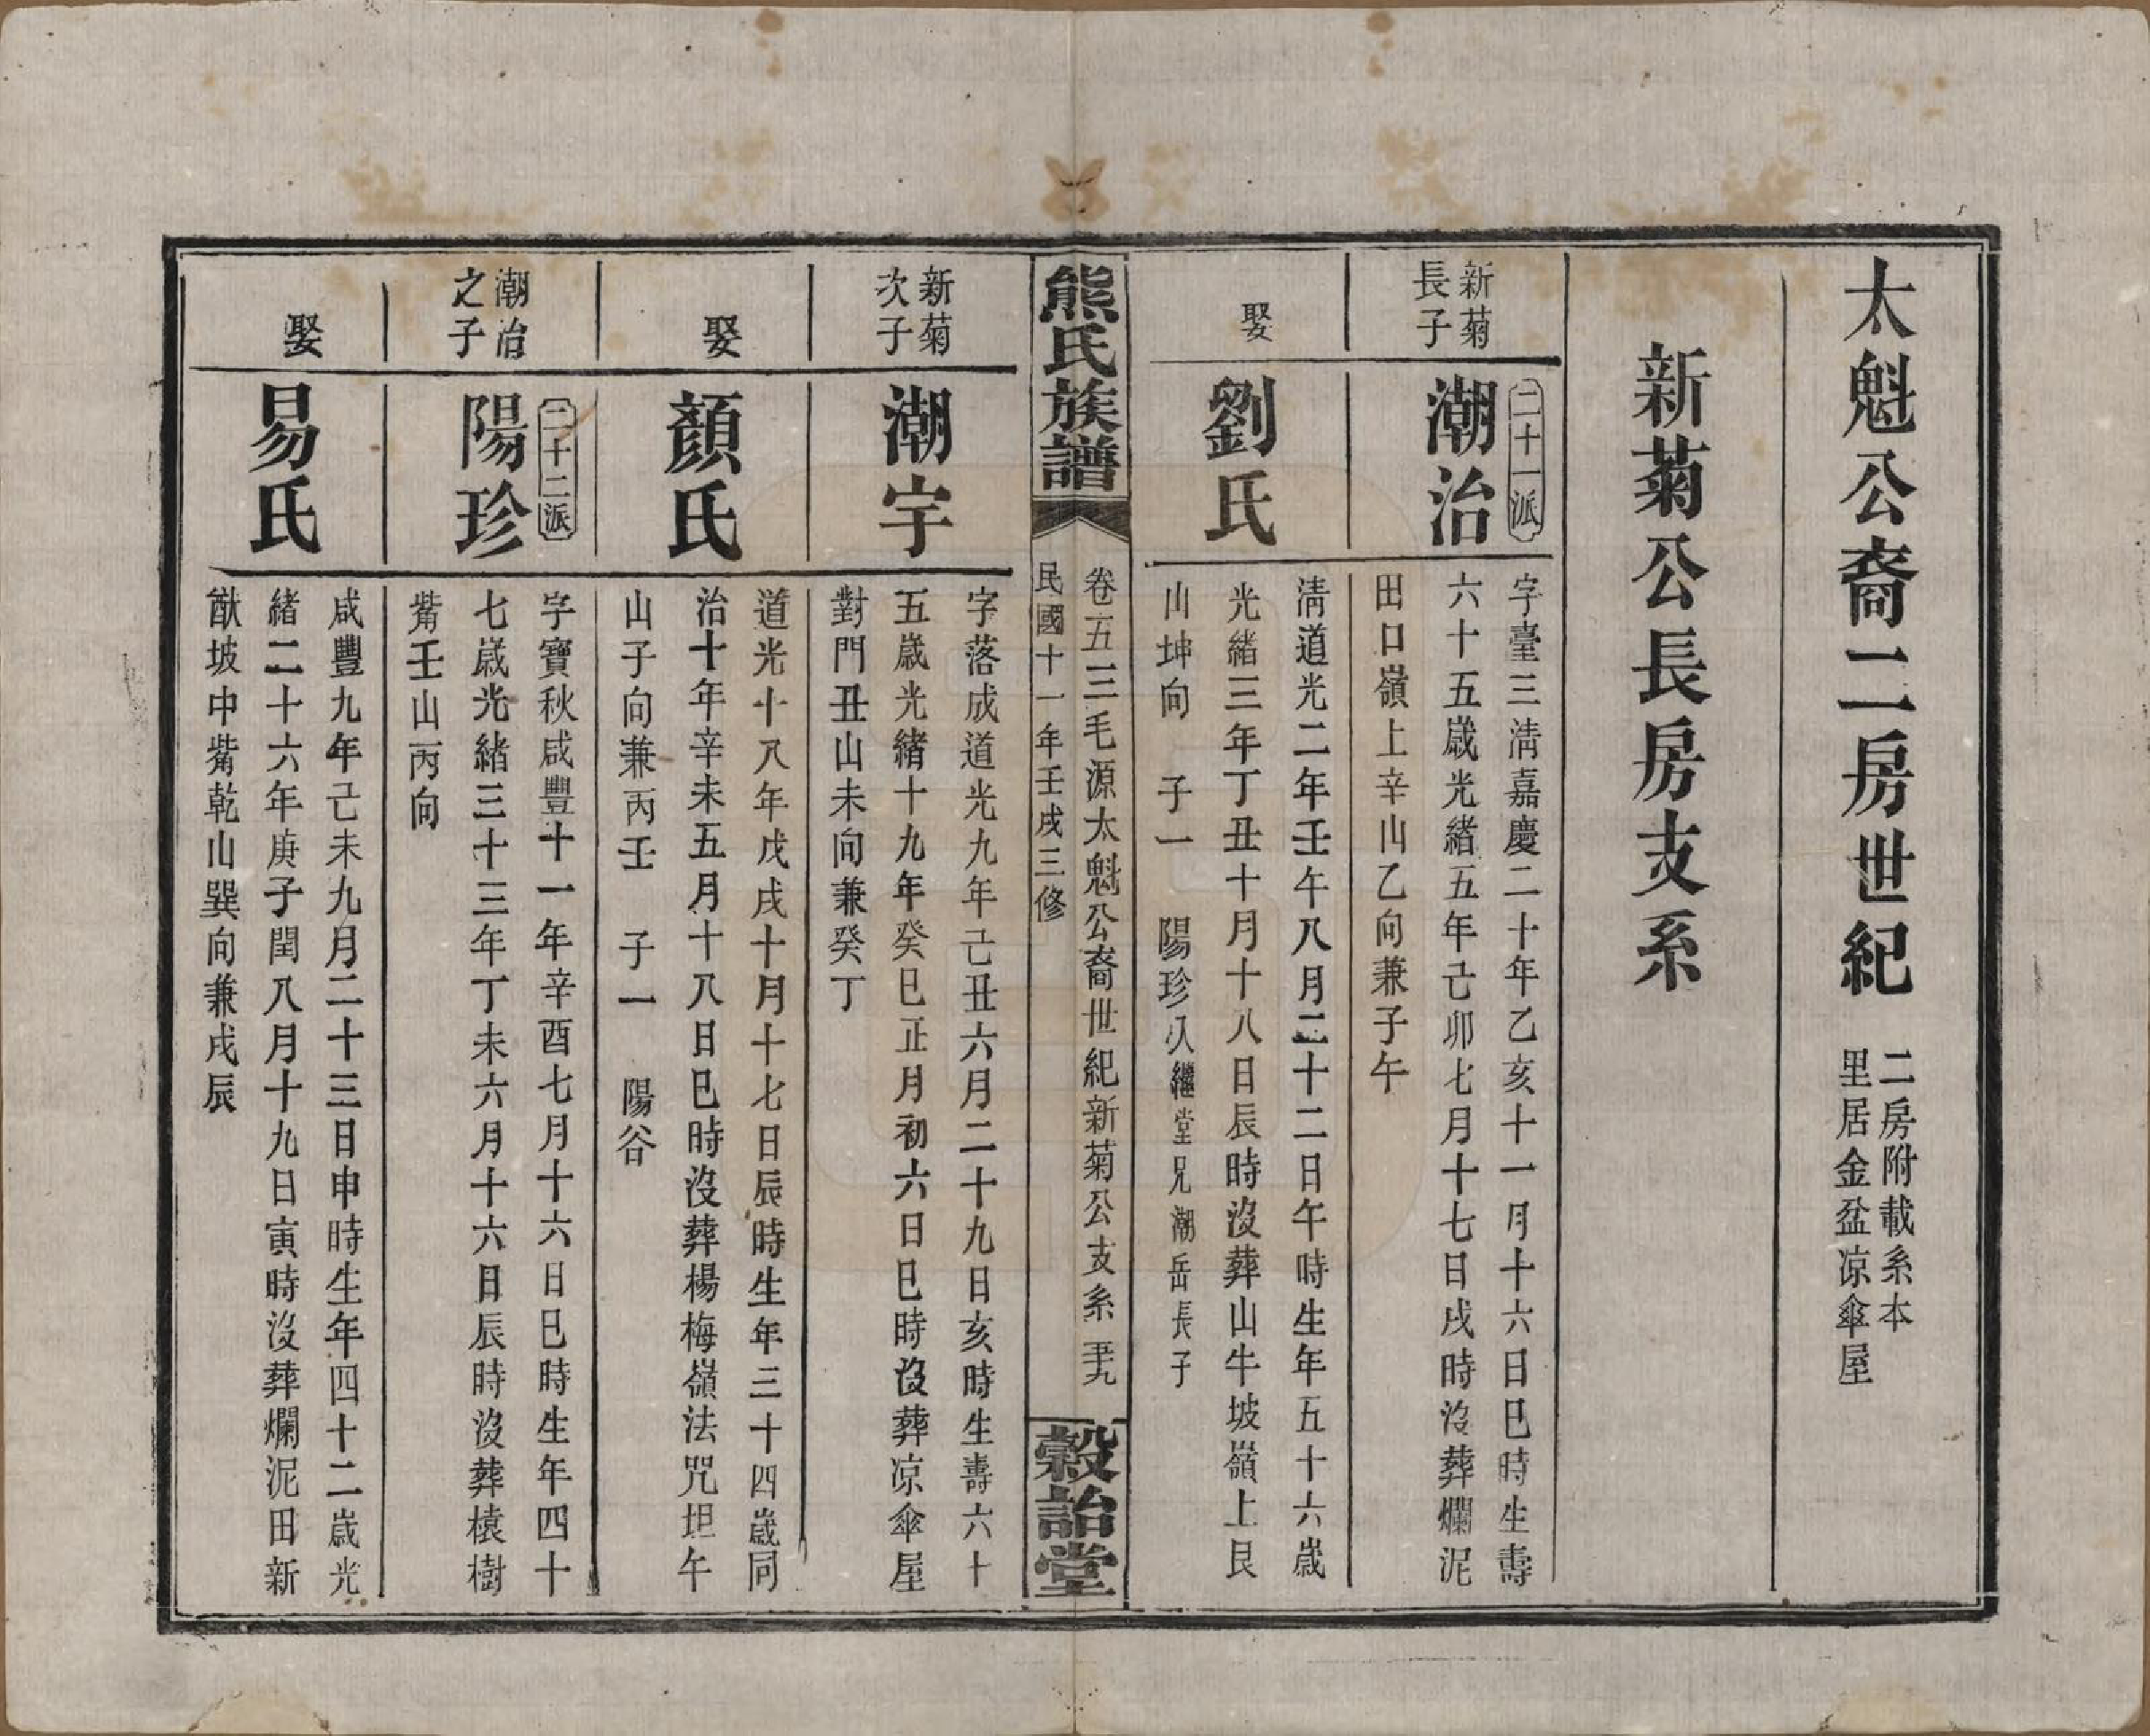 太魁公裔二房世紀
二房附載系本
里居金盆凉傘屋
新菊公長房支系
新菊
長子
二十一派
潮治
字臺三清嘉慶二十年乙亥十一月十六日巳時生壽
六十五歲光緒五年己卯七月十七日戌時沒葬爛泥
田口嶺上辛山乙向兼子午
娶
劉氏
清道光二年壬午八月二十二日午時生年五十六歲
光緒三年丁丑十月十八日辰時沒葬山牛坡嶺上艮
山坤向 子一 陽珍 繼堂兄潮岳長子
熊氏族譜
卷五三毛源太魁公裔世紀新菊公支系
民國十一年壬戌三修
穀詒堂
新菊
次子
潮宇
字落成道光九年己丑六月二十九日亥時生壽六十
五歲光緒十九年癸巳正月初六日巳時沒葬凉傘屋
對門丑山未向兼癸丁
娶
顏氏
道光十八年戊戌十月十七日辰時生年三十四歲同
治十年辛未五月十八日巳時沒葬楊梅嶺法咒坦午
山子向兼丙壬 子一 陽谷
潮治
之子
二十二派
陽珍
字寶秋咸豐十一年辛酉七月十六日巳時生年四十
七歲光緒三十三年丁未六月十六日辰時沒葬樣樹
觜壬山丙向
娶
易氏
咸豐九年己未九月二十三日申時生年四十二歲光
緒二十六年庚子閏八月十九日寅時沒葬爛泥田新
猷坡中觜乾山巽向兼戌辰